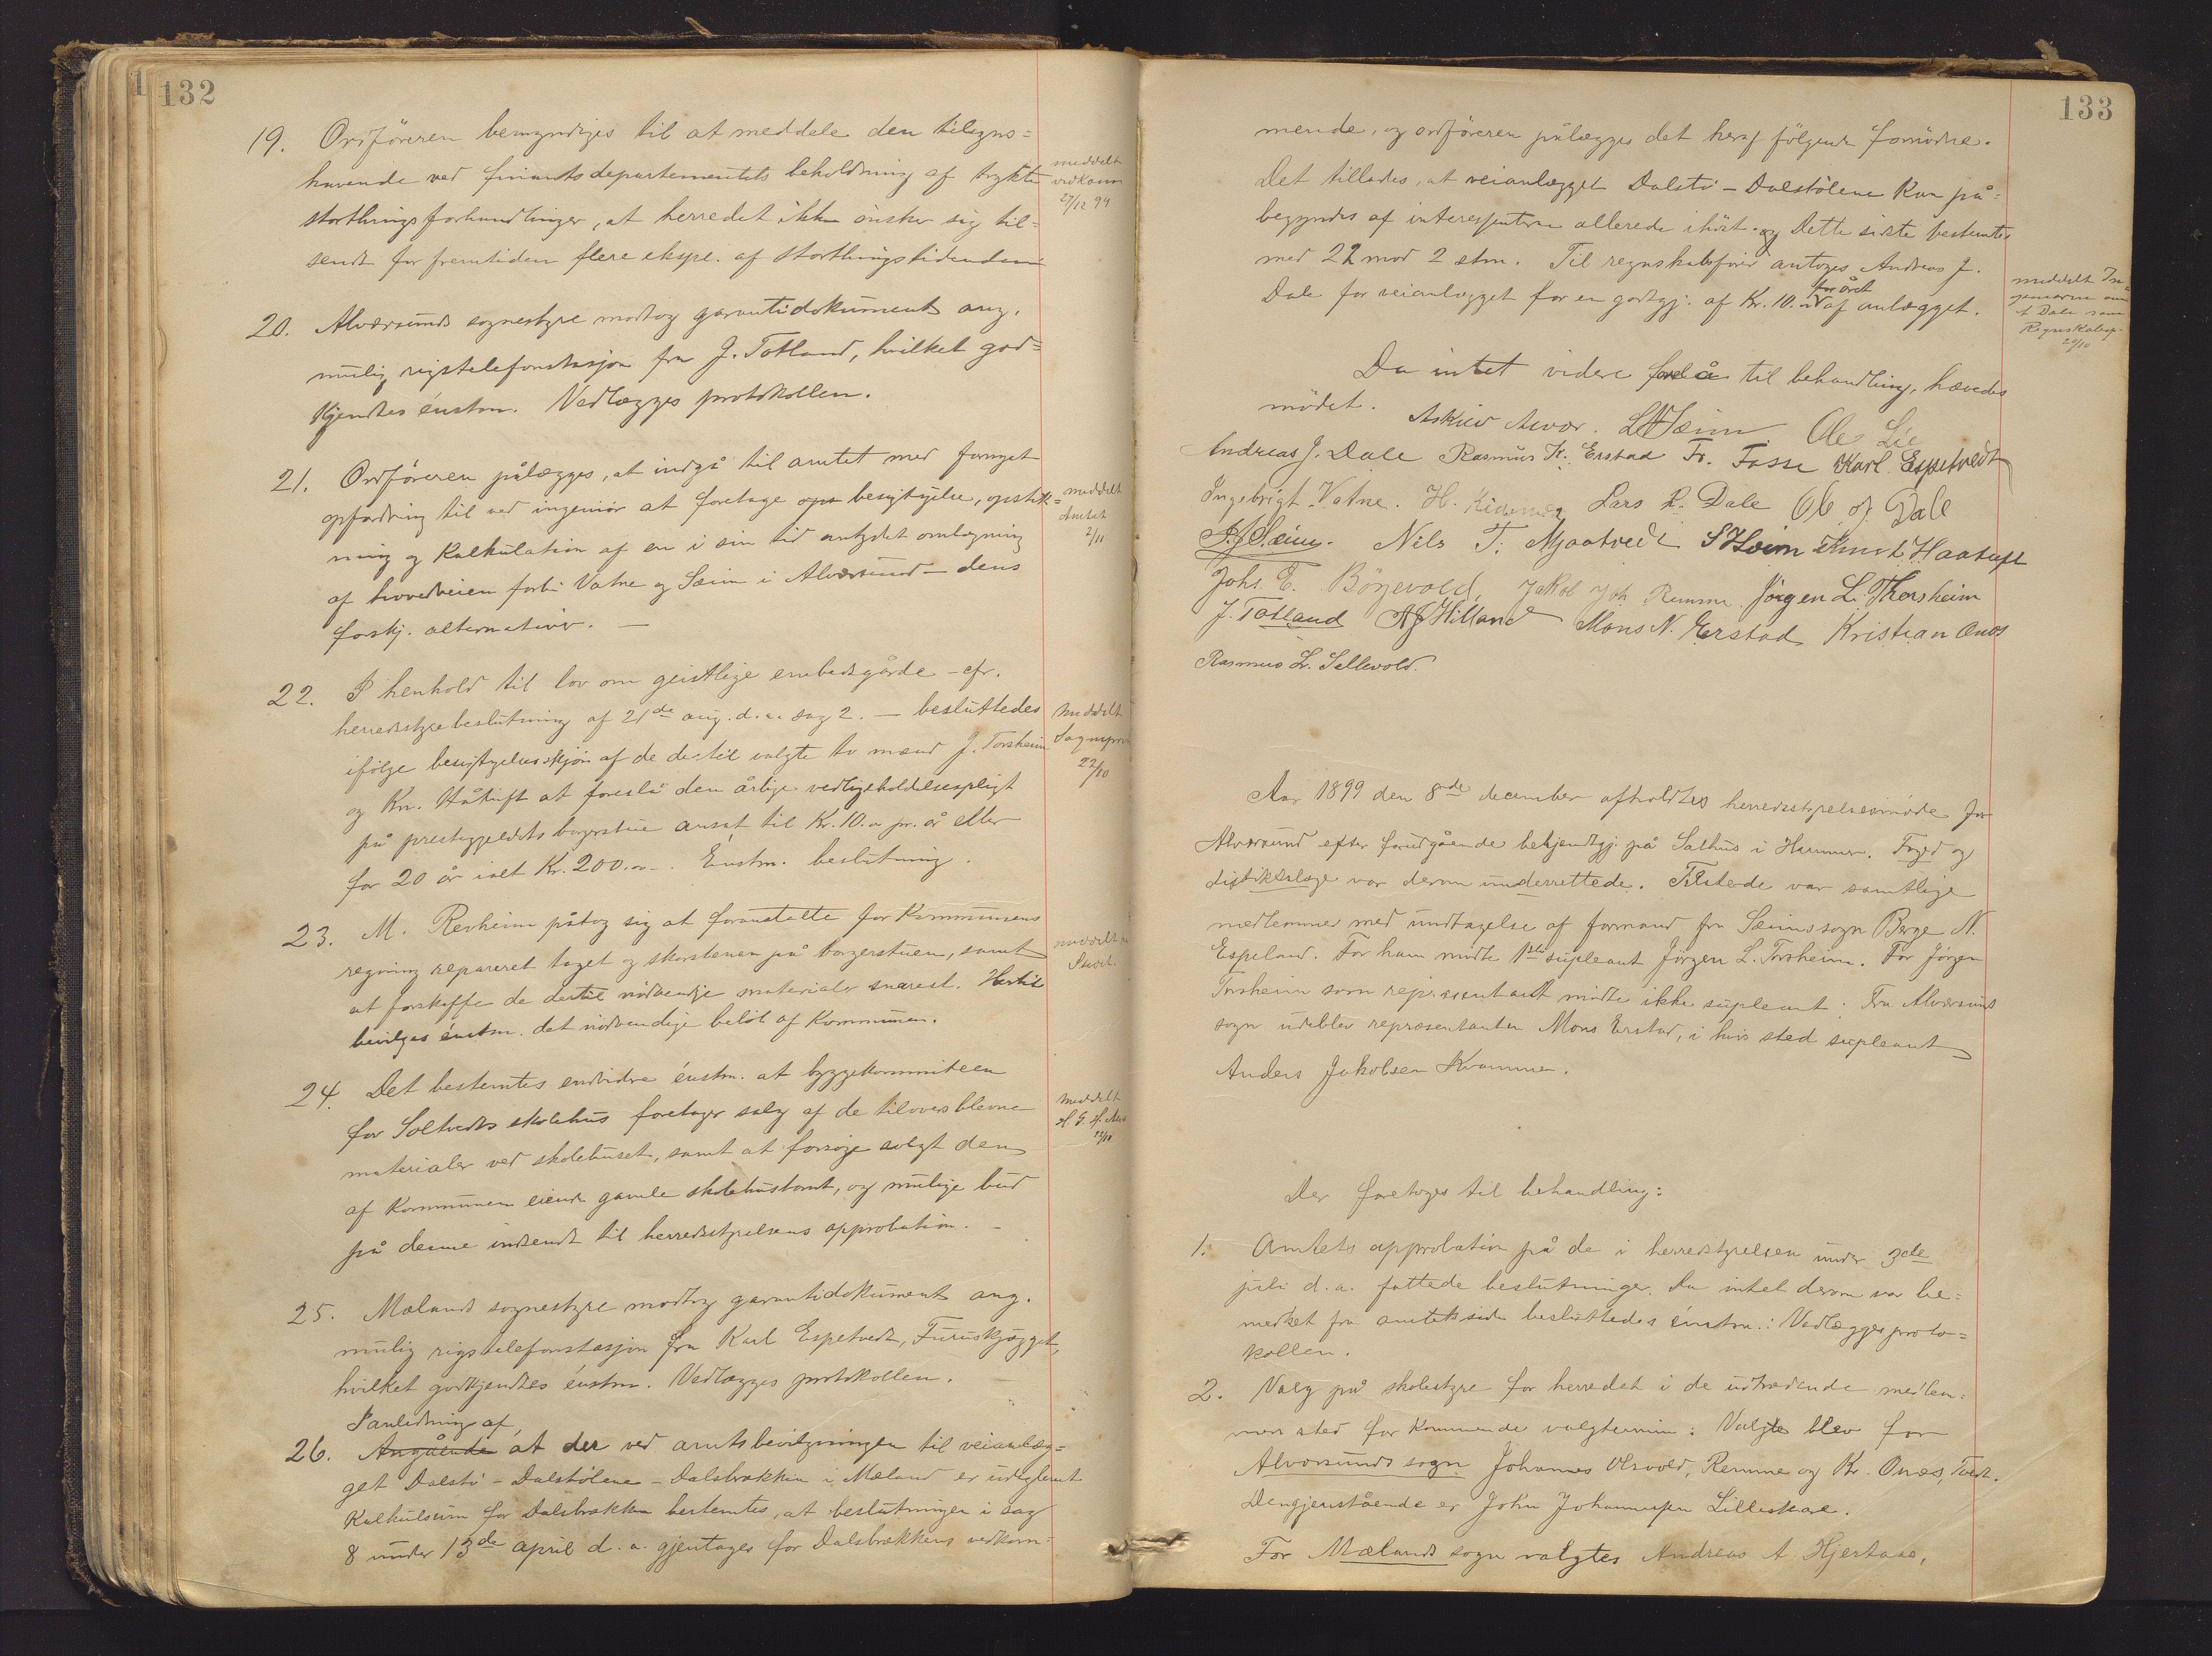 132
19. Ordföreren bemyndiges til at meddele den tilsyns=
havende ved finantsdepartementets beholdning af trykte
storthingsforhandlinger, at herredet ikke önsker sig til=
sendt for fremtiden flere expl. af storthingstidenden
meddelt
vedkom
27/12 99
20. Alversunds sognestyre modtog garantidokument ang.
mulig rigstelefonstasjon fra J. Totland, hvilket god=
kjendtes énstm. Vedlægges protokollen.
21. Ordföreren pålægges, at indgå til amtet med fornyet
opfordring til ved ingeniör at foretage besigtigelse, opstik=
ning og kalkulation af en i sin tid antydet omlægning
af hovedveien forbi Vatne og Sæim i Alversund – dens
forskj. alternativer. —
meddelt
Amtet
2/11
22. I henhold til lov om geistlige embedsgårde – cfr.
herredsstyrebeslutning af 21de aug. d.a. sag 2. — besluttedes
ifölge besigtigelsesskjön af de dertil valgte to mænd J. Torsheim
og Kn. Håtuft at foreslå den årlige vedligeholdelsespligt
på prestegjeldets borgerstue ansat til Kr. 10.00 pr. år eller
for 20 år ialt Kr. 200.00. Énstm. beslutning.
meddelt
Sogneprest
22/10
23. M. Revheim påtog sig at foranstalte for kommunens
regning repareret taget og skorstenen på borgerstuen, samt
at forskaffe de dertil nödvendige materialer snarest. Hertil
bevilges énstm. det nödvendige belöb af kommunen.
meddelt
24. Det bestemtes endvidere énstm. at byggekommiteen
for Soltvedts skolehus foretager salg af de tiloversblevne
materialer ved skolehuset, samt at forsöge solgt den
af kommunen eiende gamle skolehustomt, og mulige bud
på denne indsendt til herredsstyrelsens approbation. –
meddelt
25. Mælands sognestyre modtog garantidokument ang.
mulig rigstelefonstasjon fra Karl Espetvedt, Furuskjægget,
hvilket godkjendtes énstm. Vedlægges protokollen.
I anledning af
26. Angående at der ved amtsbevilgningen til veianlæg=
get Dalstö – Dalstölene – Dalsbrækken i Mæland er udeglemt
kalkulsum for Dalsbrækken bestemtes, at beslutningen i sag
8 under 13de april d.a. gjentages for Dalsbrækkens vedkom=
133
mende, og ordföreren pålægges det heraf fölgende fornödne.
Det tillades, at veianlægget Dalstö – Dalstölene kan på=
begyndes af interessenterne allerede i höst. og Dette sidste bestemtes
med 22 mod 2 stm. Til regnskabsförer antoges Andreas J.
for året
Dale for veianlægget for en godtgj. af Kr. 10.00 af anlægget.
meddelt In-
geniören om
A Dale som
Regnskabsf.
20/10
Da intet videre forelå til behandling, hævedes
mödet.
Askild Alvær. L Sæim Ole Lie
Andreas J. Dale Rasmus K. Erstad Fr. Fosse Karl Espetvedt
Ingebrigt Vatne. H. Lars R. Dale Ole J. Dale
Nils T. Mjaatvedt S Hoim Knut Haatuft
Johs. E. Börjevold, Jakob Joh. Remme Jörgen L. Thorsheim
J. Totland A J Hilland Mons N. Erstad Kristian Onæs
Rasmus L. Sellevold.
Aar 1899 den 8de december afholdtes herredsstyrelsesmöde for
Alversund efter forudgående bekjendtgj. på Salhus i Hammer. Foged og
distriktslæge var derom underrettede. Tilstede var samtlige
medlemmer med undtagelse af formand fra Sæims sogn Berge N.
Espeland. For ham mödte 1ste supleant Jörgen L. Torsheim. For Jörgen
Torsheim som representant mödte ikke supleant. Fra Alversunds
sogn udeblev representanten Mons Erstad, i hvis sted supleant
Anders Jakobsen Kvamme.
Der foretoges til behandling:
1. Amtets approbation på de i herredsstyrelsen under 3de
juli d.a. fattede beslutninger. Da intet derom var be=
merket fra amtets side besluttedes énstm.: Vedlægges proto=
kollen.
2. Valg på skolestyre for herredet i de udtrædende medlem=
mers sted for kommende valgtermin: Valgte blev for
Alversunds sogn Johannes Elsvold, Remme og Kr. Onæs, Tvedt.
Dengjenstående er John Johannessen Lilleskare.
For Mælands sogn valgtes Andreas A. Hjertaas,